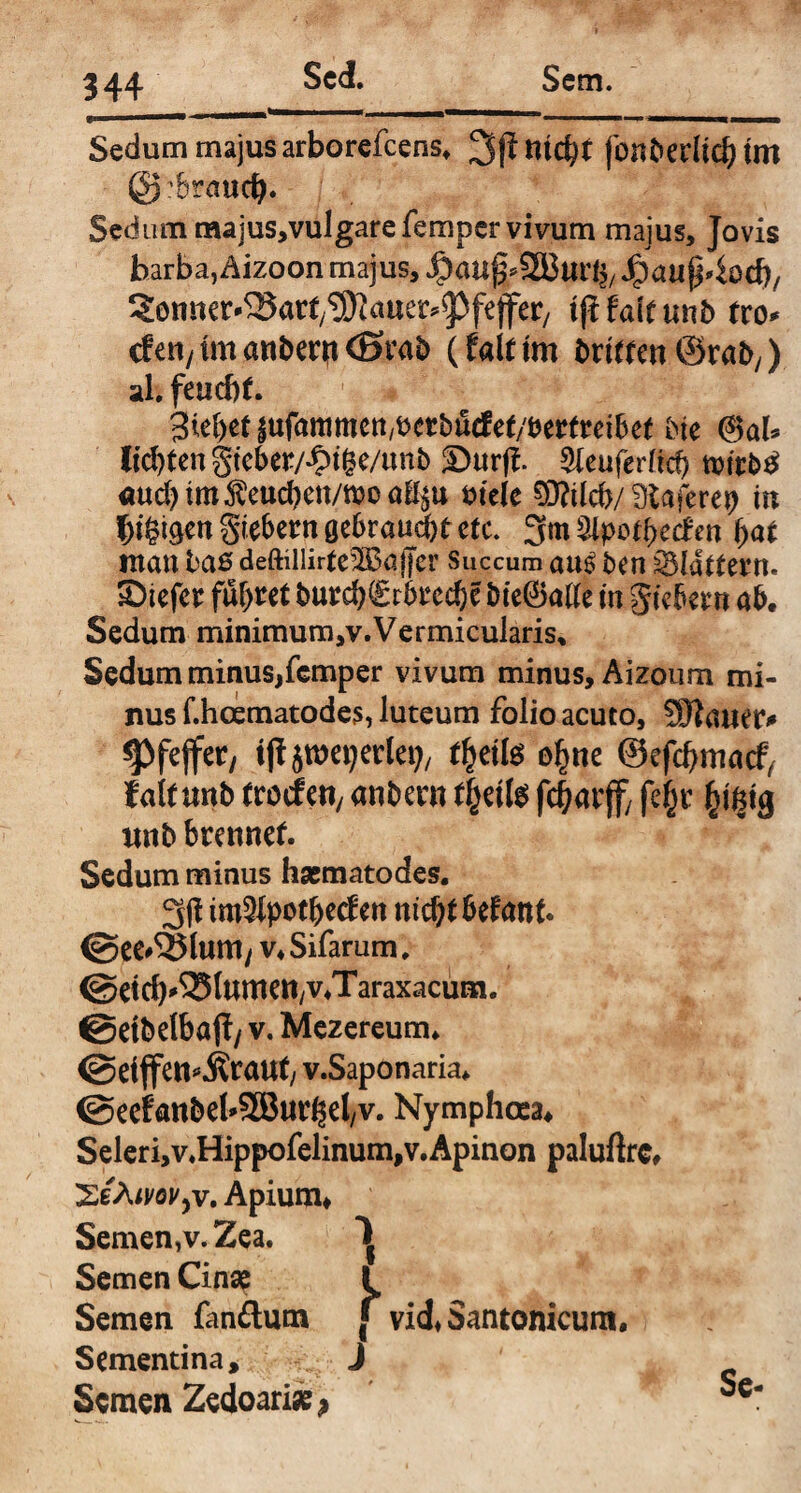 344 Sed. Sem.
Sedum majus arborescens. Ist nicht sonderlich im
G:brauch.
Sedum majus, vulgare semper vivum majus, Jovis
barba, Aizoon majus, Hauß-Wurtz, Hauß-Loch,
Donner-Bart, Mauer-Pfeffer, ist kalt und tro-
cken, im andern Grad (kalt im dritten Grad,)
al. feucht.
Ziehet zusammen/verdücket/vertreibet die Gal-
lichten Fieber/Hitze/und Durst. Aeuserlich wirds
auch im Keuchen/wo allzu viele Milch/Raserey in
hitzigen Fiebern gebraucht etc. Im Apothecken hat
man das destillirte Wasser Succum aus den Blättern.
Dieser führet durch Erbreche die Galle in Fiebern ab.
Sedum minimum, v. Vermicularis.
Sedum minus, semper vivum minus, Aizoum mi-
nus s. hœmatodes, luteum folio acuto, Mauer-
Pfeffer, ist zweyerley, theils ohne Geschmack,
kalt und trocken, andern theils scharff, sehr hitzig
und brennet.
Sedum minus hæmatodes.
Ist im Apothecken nicht bekant.
See-Blum, v. Sisarum.
Seich-Blumen, v. Taraxacum.
Seidelbast, v. Mezereum.
Seiffen-Kraut, v. Saponaria.
Seekandel-Wurtzel, v. Nymphœa.
Seleri, v. Hipposelinum, v. Apinon palustre,
Σέλινον, v. Apium.
Semen, v. Zea.
Semen Cinæ
Semen sanctum } vid. Santonicum.
Sementina,
Semen Zedoariæ,
Se-